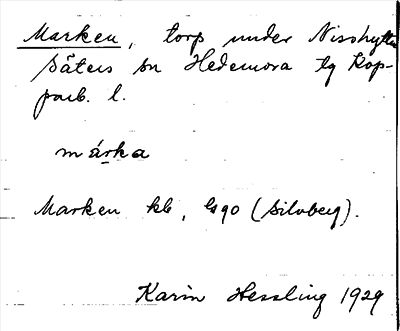 Marken, torp under Nisshytte
Säters sn Hedemora tg Kop-
parb. l.
márka
Marken kb, (Silvberg).
Karin Hessling 1929